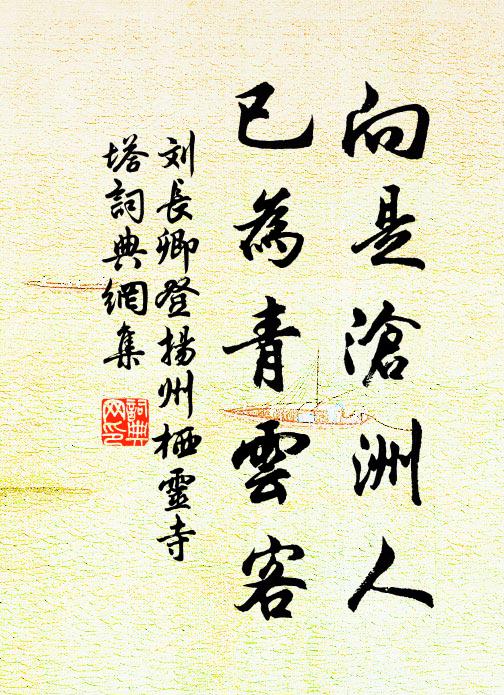 向是滄洲人
已為青雲客
刘長卿登揚州栖靈寺
塔詞典網集
詞典网印